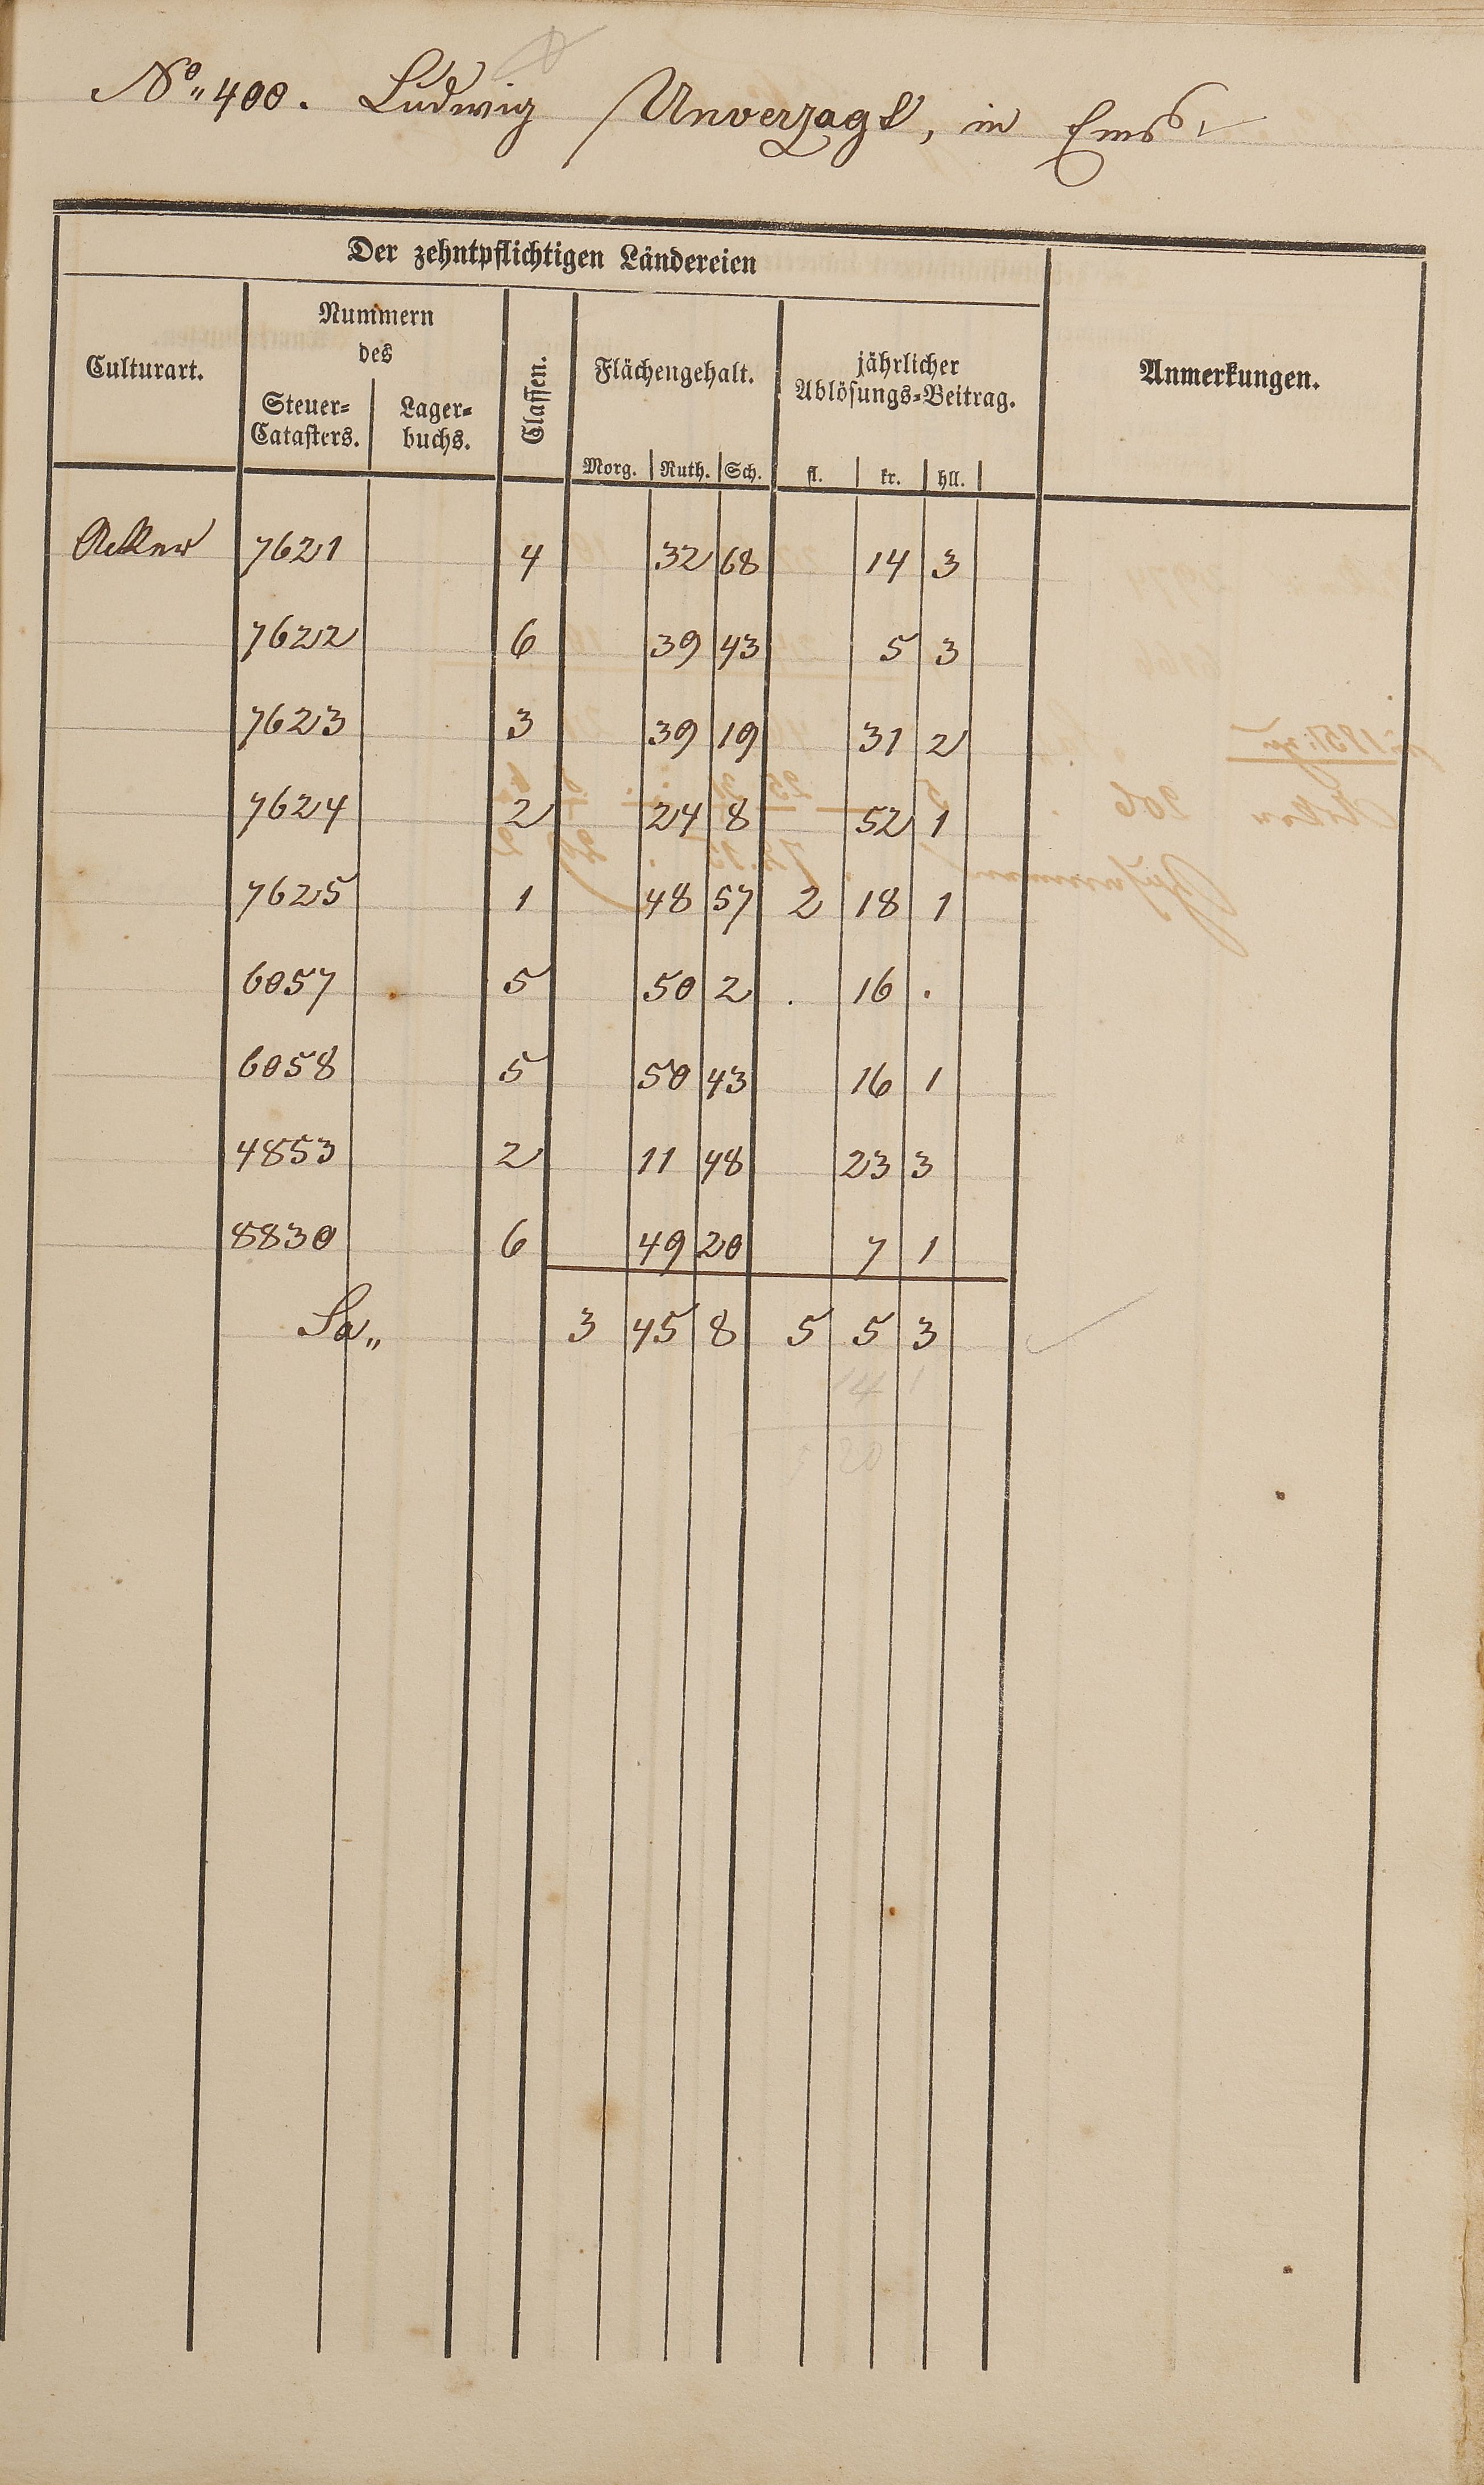 No 400. Ludwig Unverzagt, in Ems
Der zehntpflichtigen Ländereien
Culturart.
Nummern
des
Steuer-
Catasters.
Lager-
buchs.
Classen.
Flächengehalt.
Morg. Ruth. Sch.
jährlicher
Ablösungs-Beitrag.
fl. kr. hll.
Anmerkungen.
Acker 7621 4 32 68 14 3
7622 6 39 43 5 3
7623 3 39 19 31 2
7624 2 24 8 52 1
7625 1 48 57 2 18 1
6057 5 50 2 . 16 .
6058 5 50 43 16 1
4853 2 11 48 23 3
8830 6 49 20 7 1
Sa„ 3 45 8 5 5 3
14 1
5 20